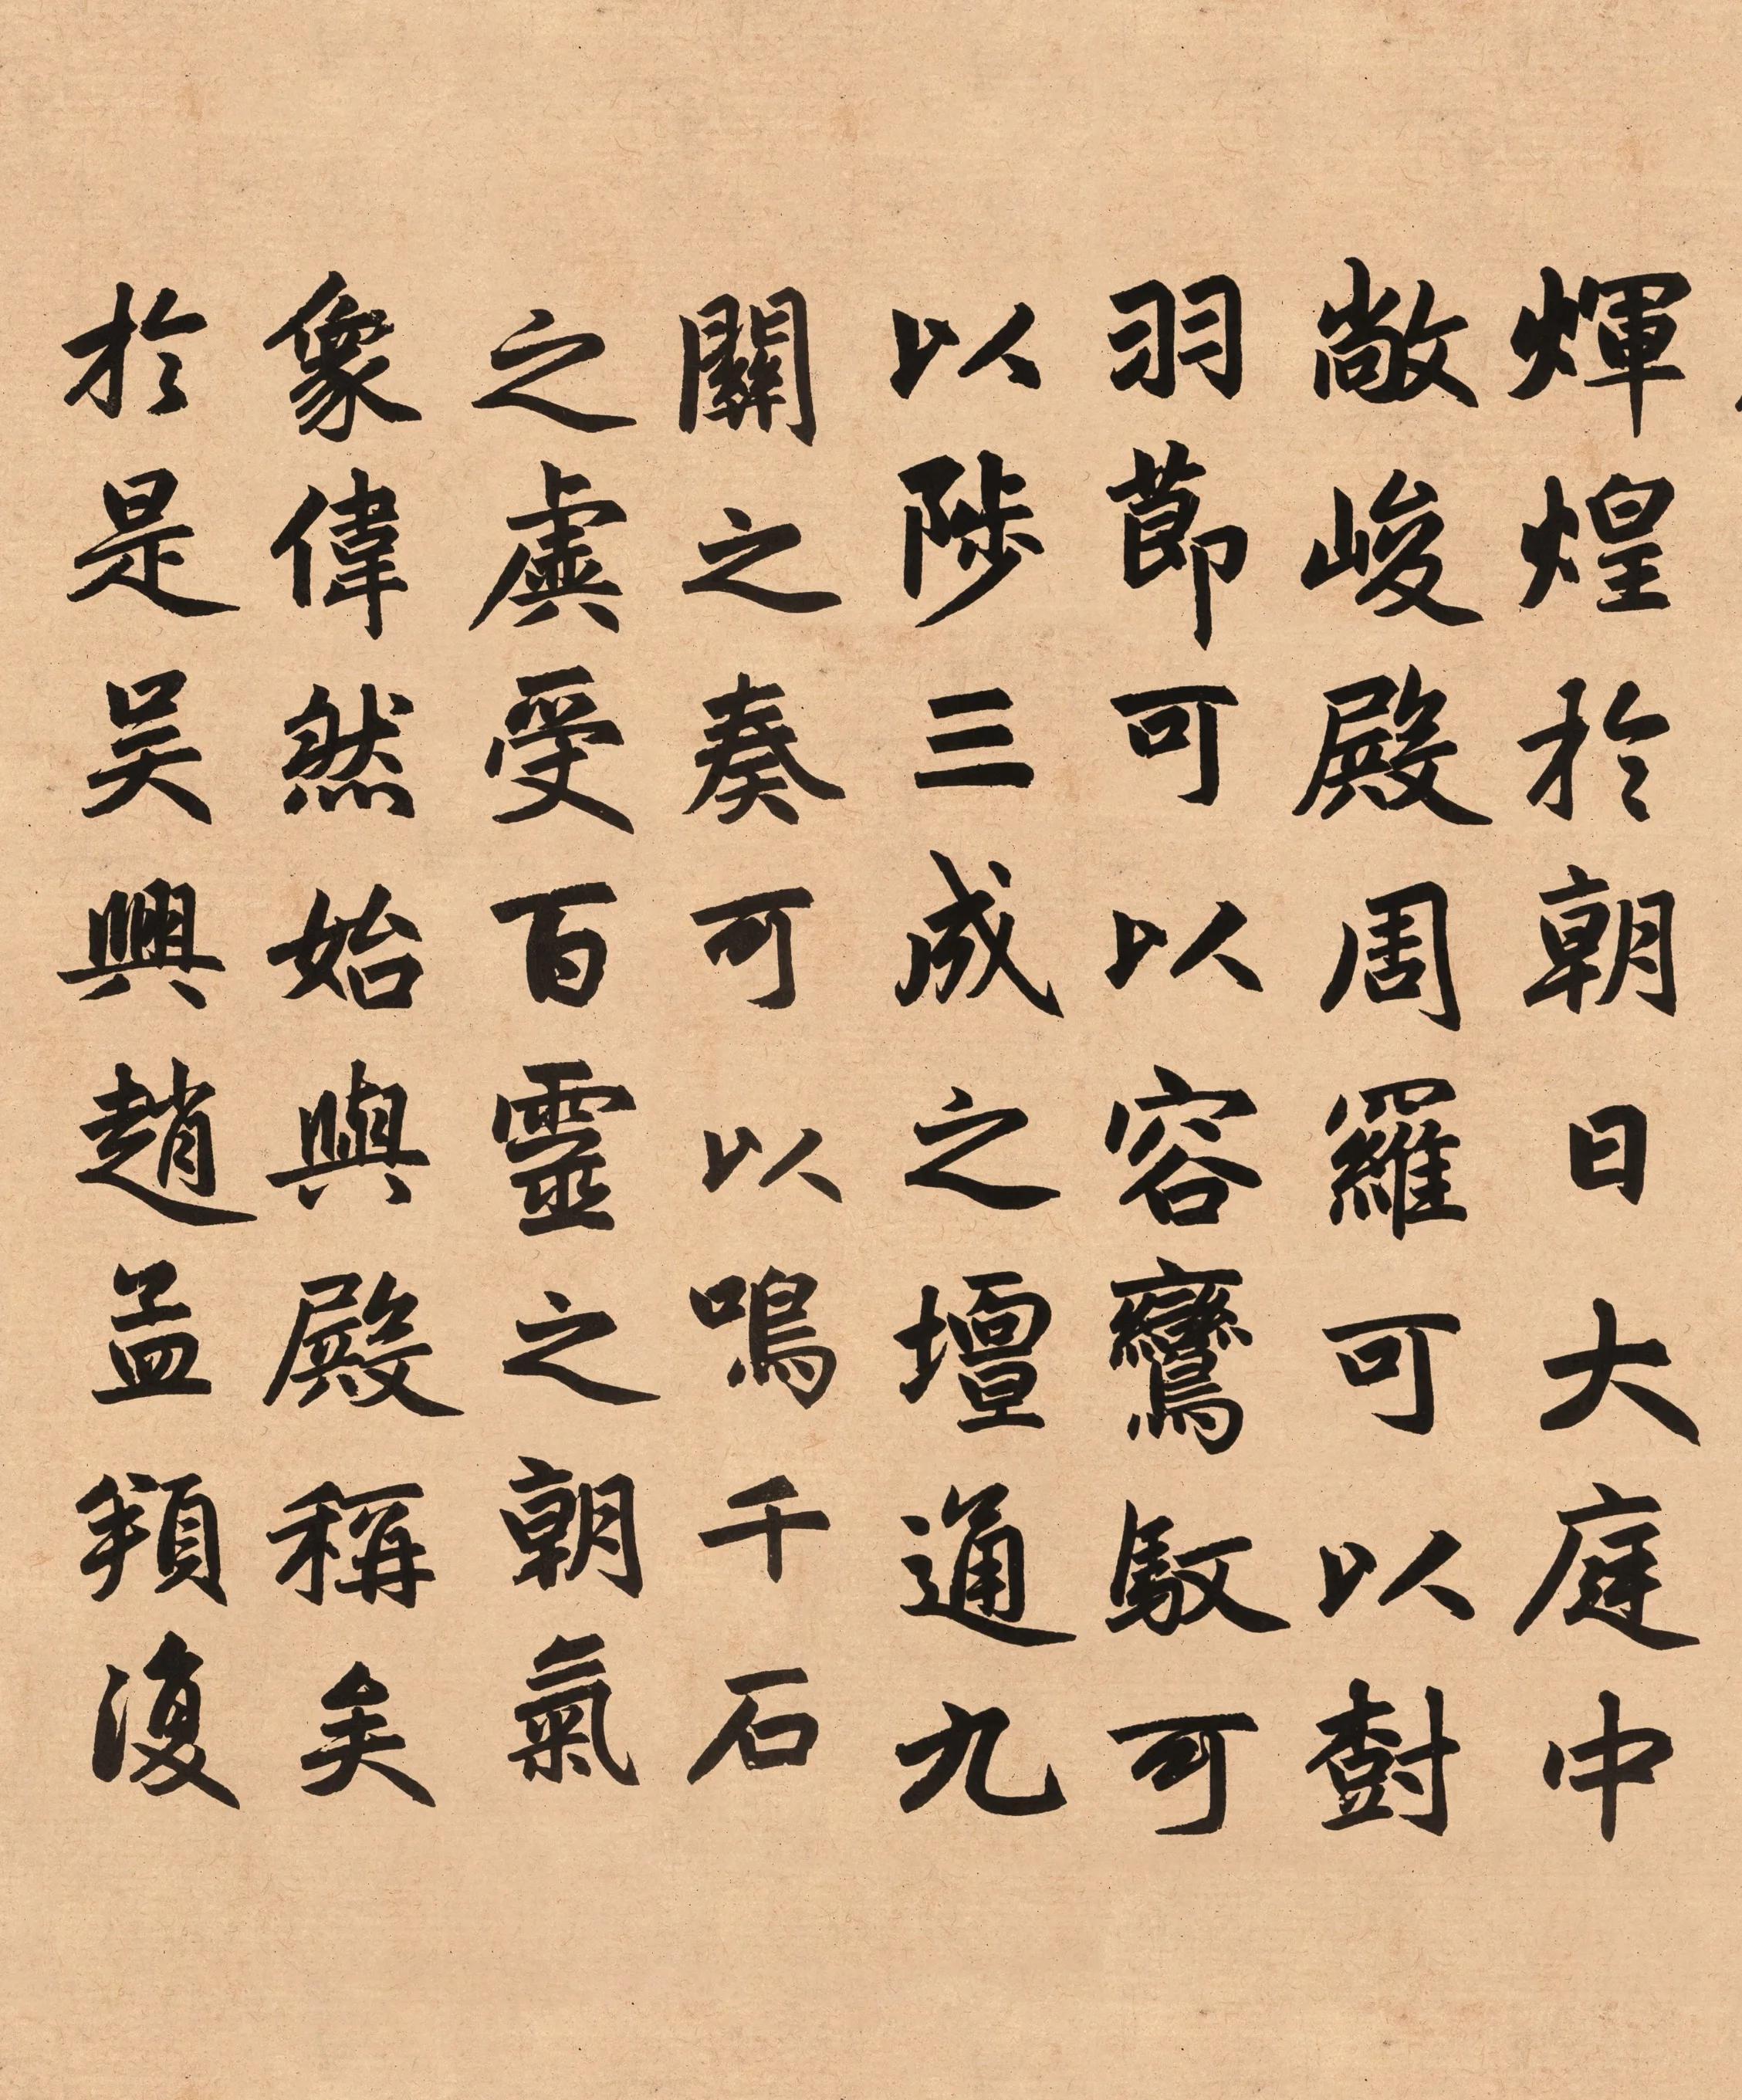 輝煌於朝日大庭中
敞峻殿周羅可以樹
羽莭可以容鸞馭可
以陟三成之壇通九
關之奏可以鳴千石
之虡受百靈之朝氣
象偉然始與殿稱矣
於是吳興趙孟頫復